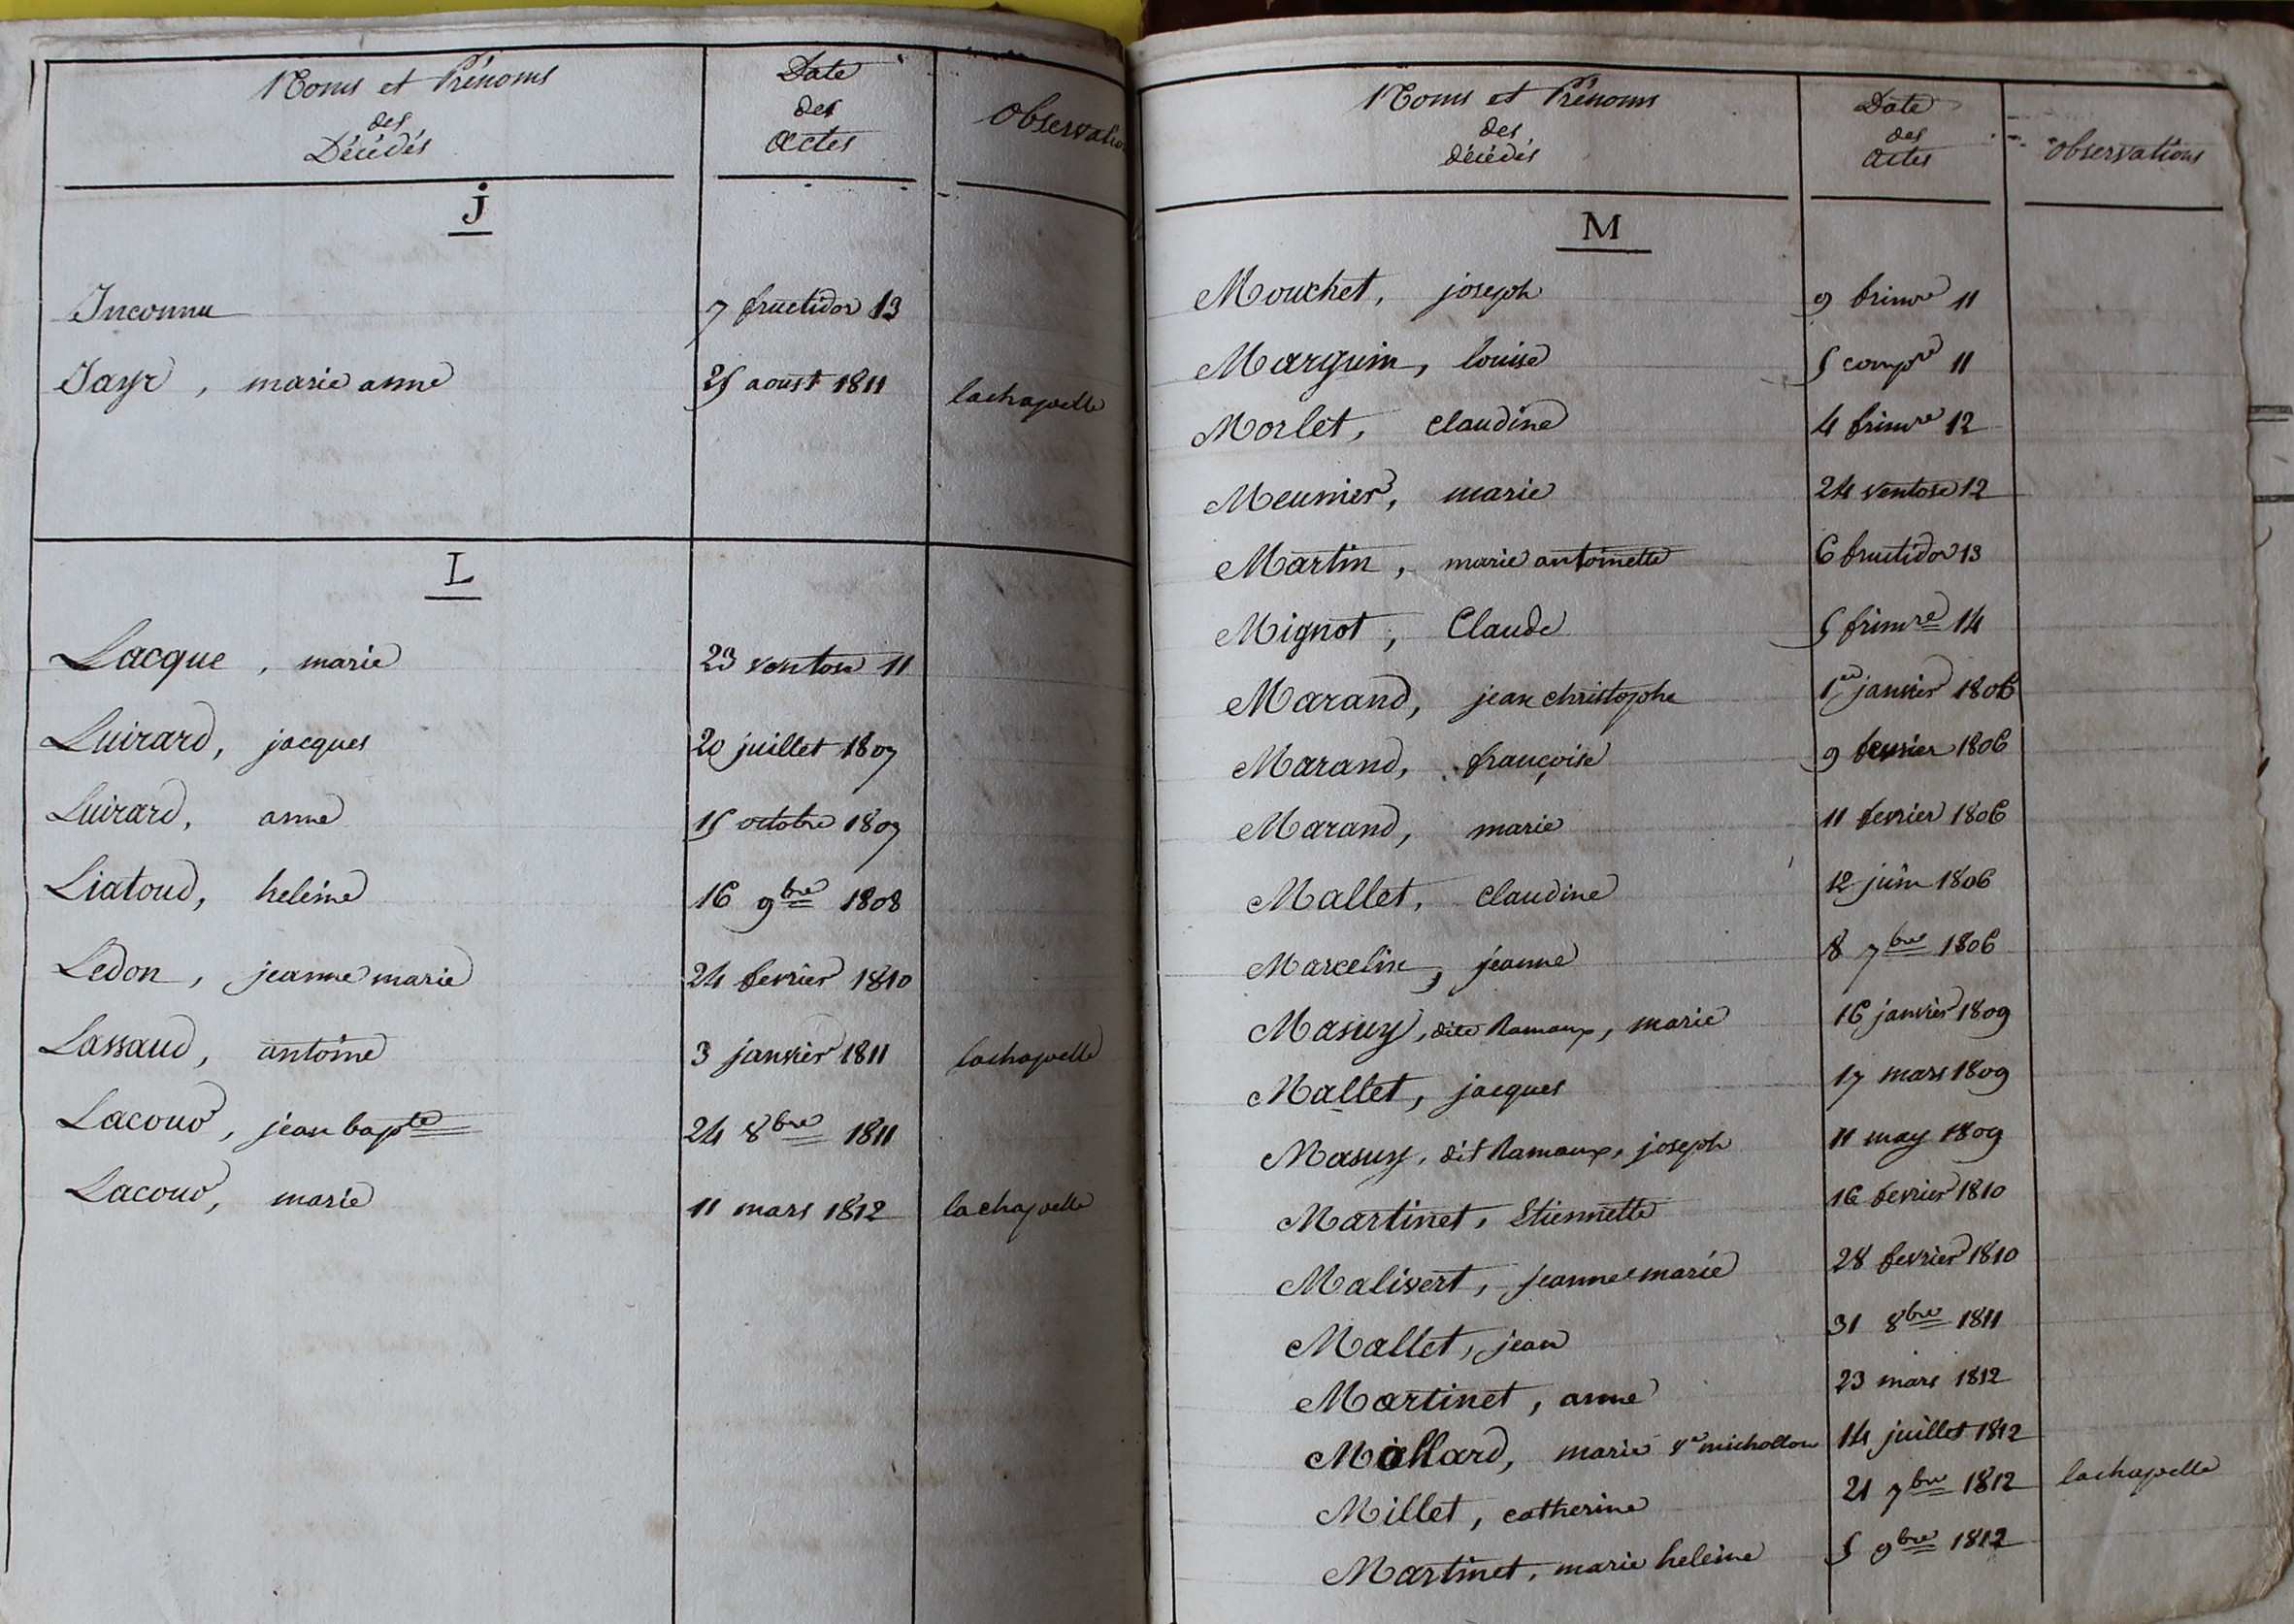 Noms et Prénoms
des
Décédés
Date
des
Actes
Observations
J
Inconnu 7 fructidor 13
Jayr, marie anne 25 aoust 1811 lachapelle
L
Lacque, marie 23 ventose 11
Luirard, jacques 20 juillet 1807
Luirard, anne 15 octobre 1807
Liatoud, heleine 16 9bre 1808
Ledon, jeanne marie 24 fevrier 1810
Lassaud, antoine 3 janvier 1811 lachapelle
Lacour, jean bapte 24 8bre 1811
Lacour, marie 11 mars 1812 lachapelle
Noms et Prénoms
des
décédés
Date
des
Actes
Observations
M
Mouchet, joseph 9 frimre 11
Marguin, louise 5 compre 11
Morlet, claudine 4 frimre 12
Meunier, marie 24 ventose 12
Martin, marie antoinette 6 fructidor 13
Mignot, Claude 5 frimre 14
Marand, jean christophe 1er janvier 1806
Marand, françoise 9 fevrier 1806
Marand, marie 11 fevrier 1806
Mallet, claudine 12 juin 1806
Marcelin, jeanne 8 7bre 1806
Masuy, dite Ramaux, marie 16 janvier 1809
Mallet, jacques 17 mars 1809
Masuy, dit Ramaux, joseph 11 may 1809
Martinet, Etiennette 16 fevrier 1810
Malivert, jeanne marie 28 fevrier 1810
Mallet, jean 31 8bre 1811
Martinet, anne 23 mars 1812
Mollard, marie ve michollon 14 juillet 1812
Millet, catherine 21 7bre 1812 lachapelle
Martinet, marie heleine 5 9bre 1812